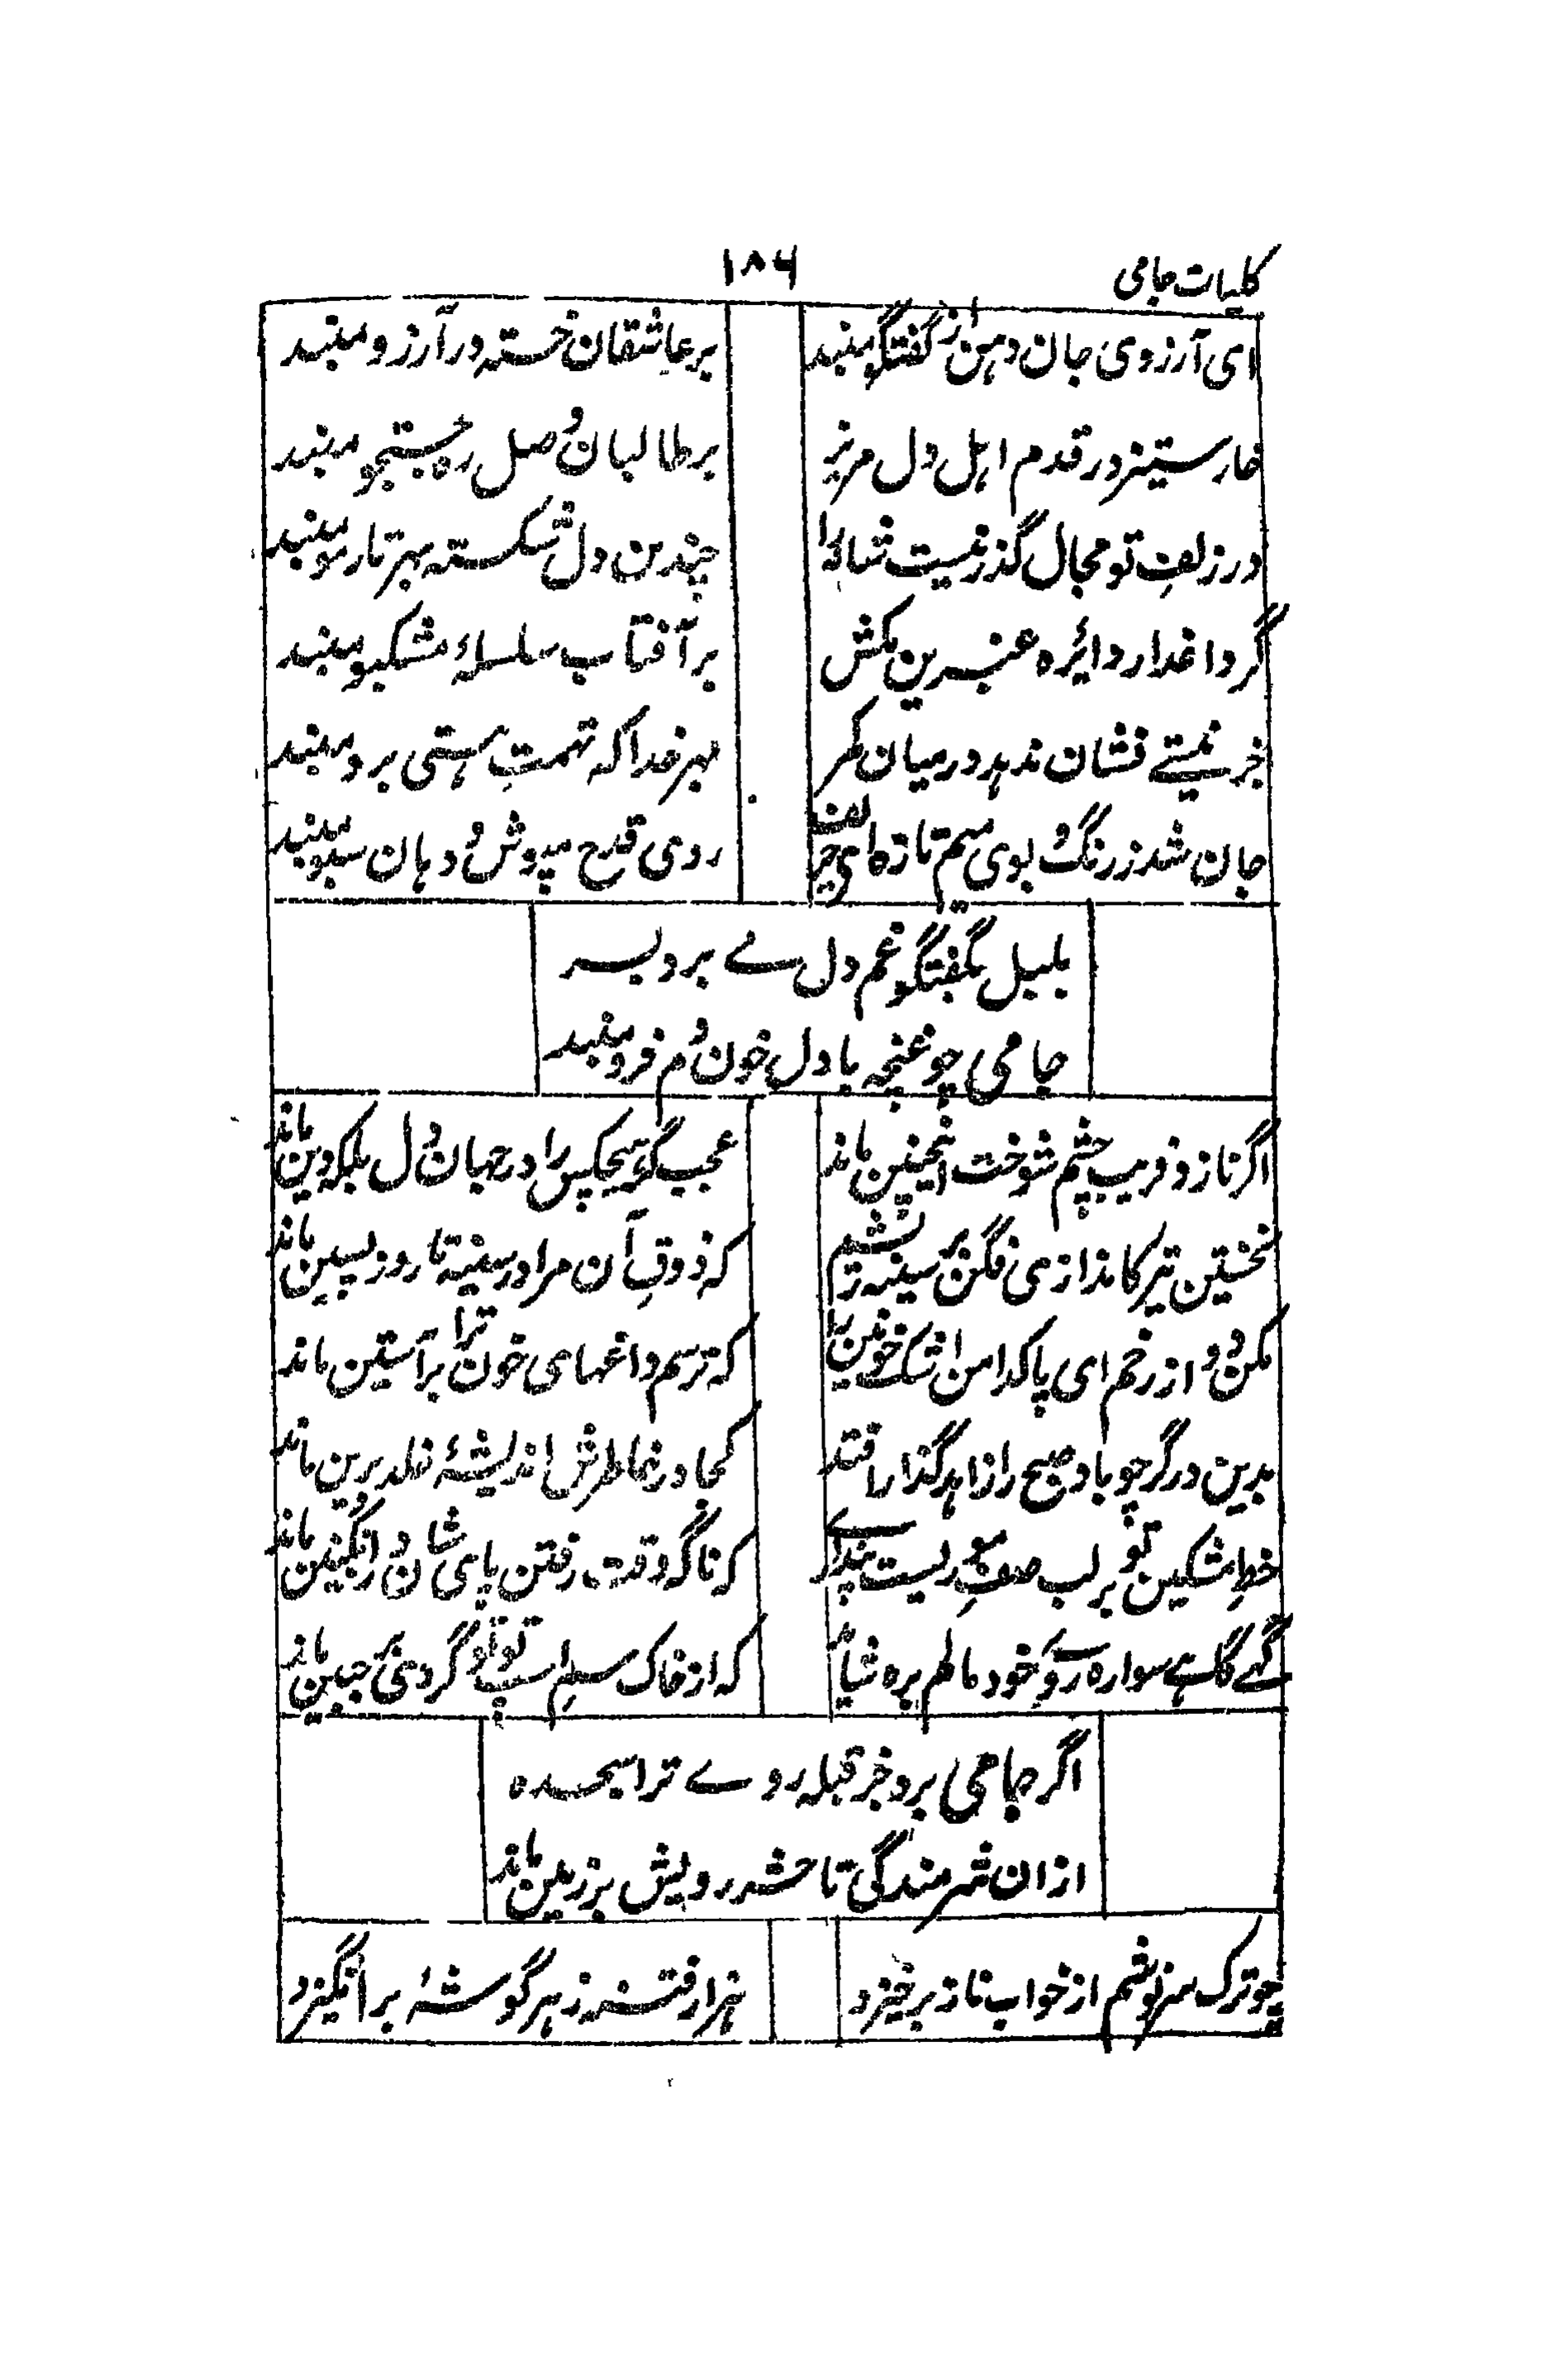 کلیات جامی
۱۸۶
ای آرزوی جان دهن از گفتگو مبند
بر عاشقان خسته در آرزو مبند
خار ستیز در قدم اهل دل مریز
بر طالبان وصل ره جستجو مبند
در زلفِ تو مجال گذر نیست شانه را
چندین دل شکسته بهر تار مو مبند
گرد عذار دائره عنبرین مکش
بر آفتاب سلسلهٔ مشکبو مبند
جز نیستے نشان ندهد در میان کمر
بهر خدا که تهمتِ هستی برو مبند
جان شد ز رنگ و بوی میم تازه ای
روی قدح مپوش و دهان سبو مبند
بلبل بگفتگو غم دل مے برد بسر
جامی چو غنچه با دل خون دم فرو مبند
اگر ناز و فریب چشم شوخت اینچنین ماند
عجب گر هیچکس را در جهان دل بلکه دین ماند
نخستین تیر کاندازی فگن بر سینهٔ ریشم
که ذوقِ آن مرا در سینه تا روز پسین ماند
مکن دور از رخم ای پاکدامن اشک خونین را
که ترسم داغهای خون ترا بر آستین ماند
بدین در گر چو باد صبح زاهد را گذار افتد
کجا در خاطرش اندیشهٔ خلد برین ماند
خطِ مشکین تو بر لب صفِ موریست پندارے
که ناگه وقت رفتن پای شان در انگبین ماند
گهے گاهے سواره
که از خاک سم اسپ تو گردی بر جبین ماند
اگر جامی برد جز قبله روے ترا سجده
ازان شرمندگی تا حشر رویش بر زمین ماند
چو ترک سرخوشم از خواب ناز برخیزد
هزار فتنه ز هر گوشهٔ برانگیزد